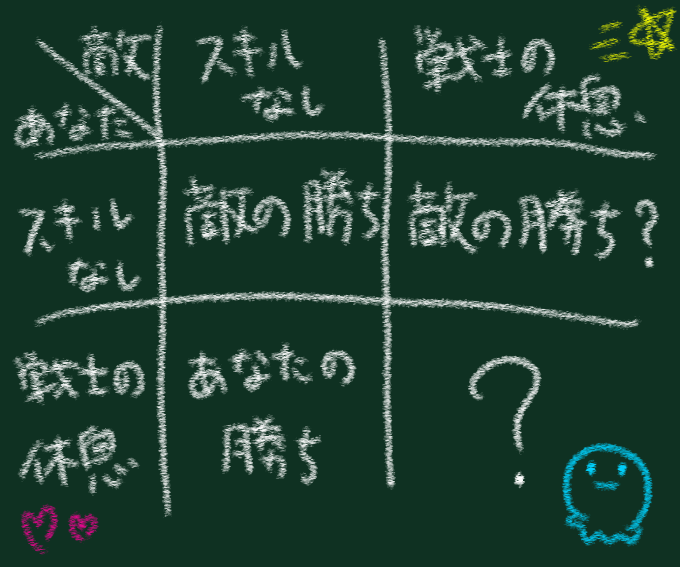 敵
あなた
スキル
なし
戦士の
休息
スキル
なし
敵の勝ち
敵の勝ち?
戦士の
休息
あなたの
勝ち
?